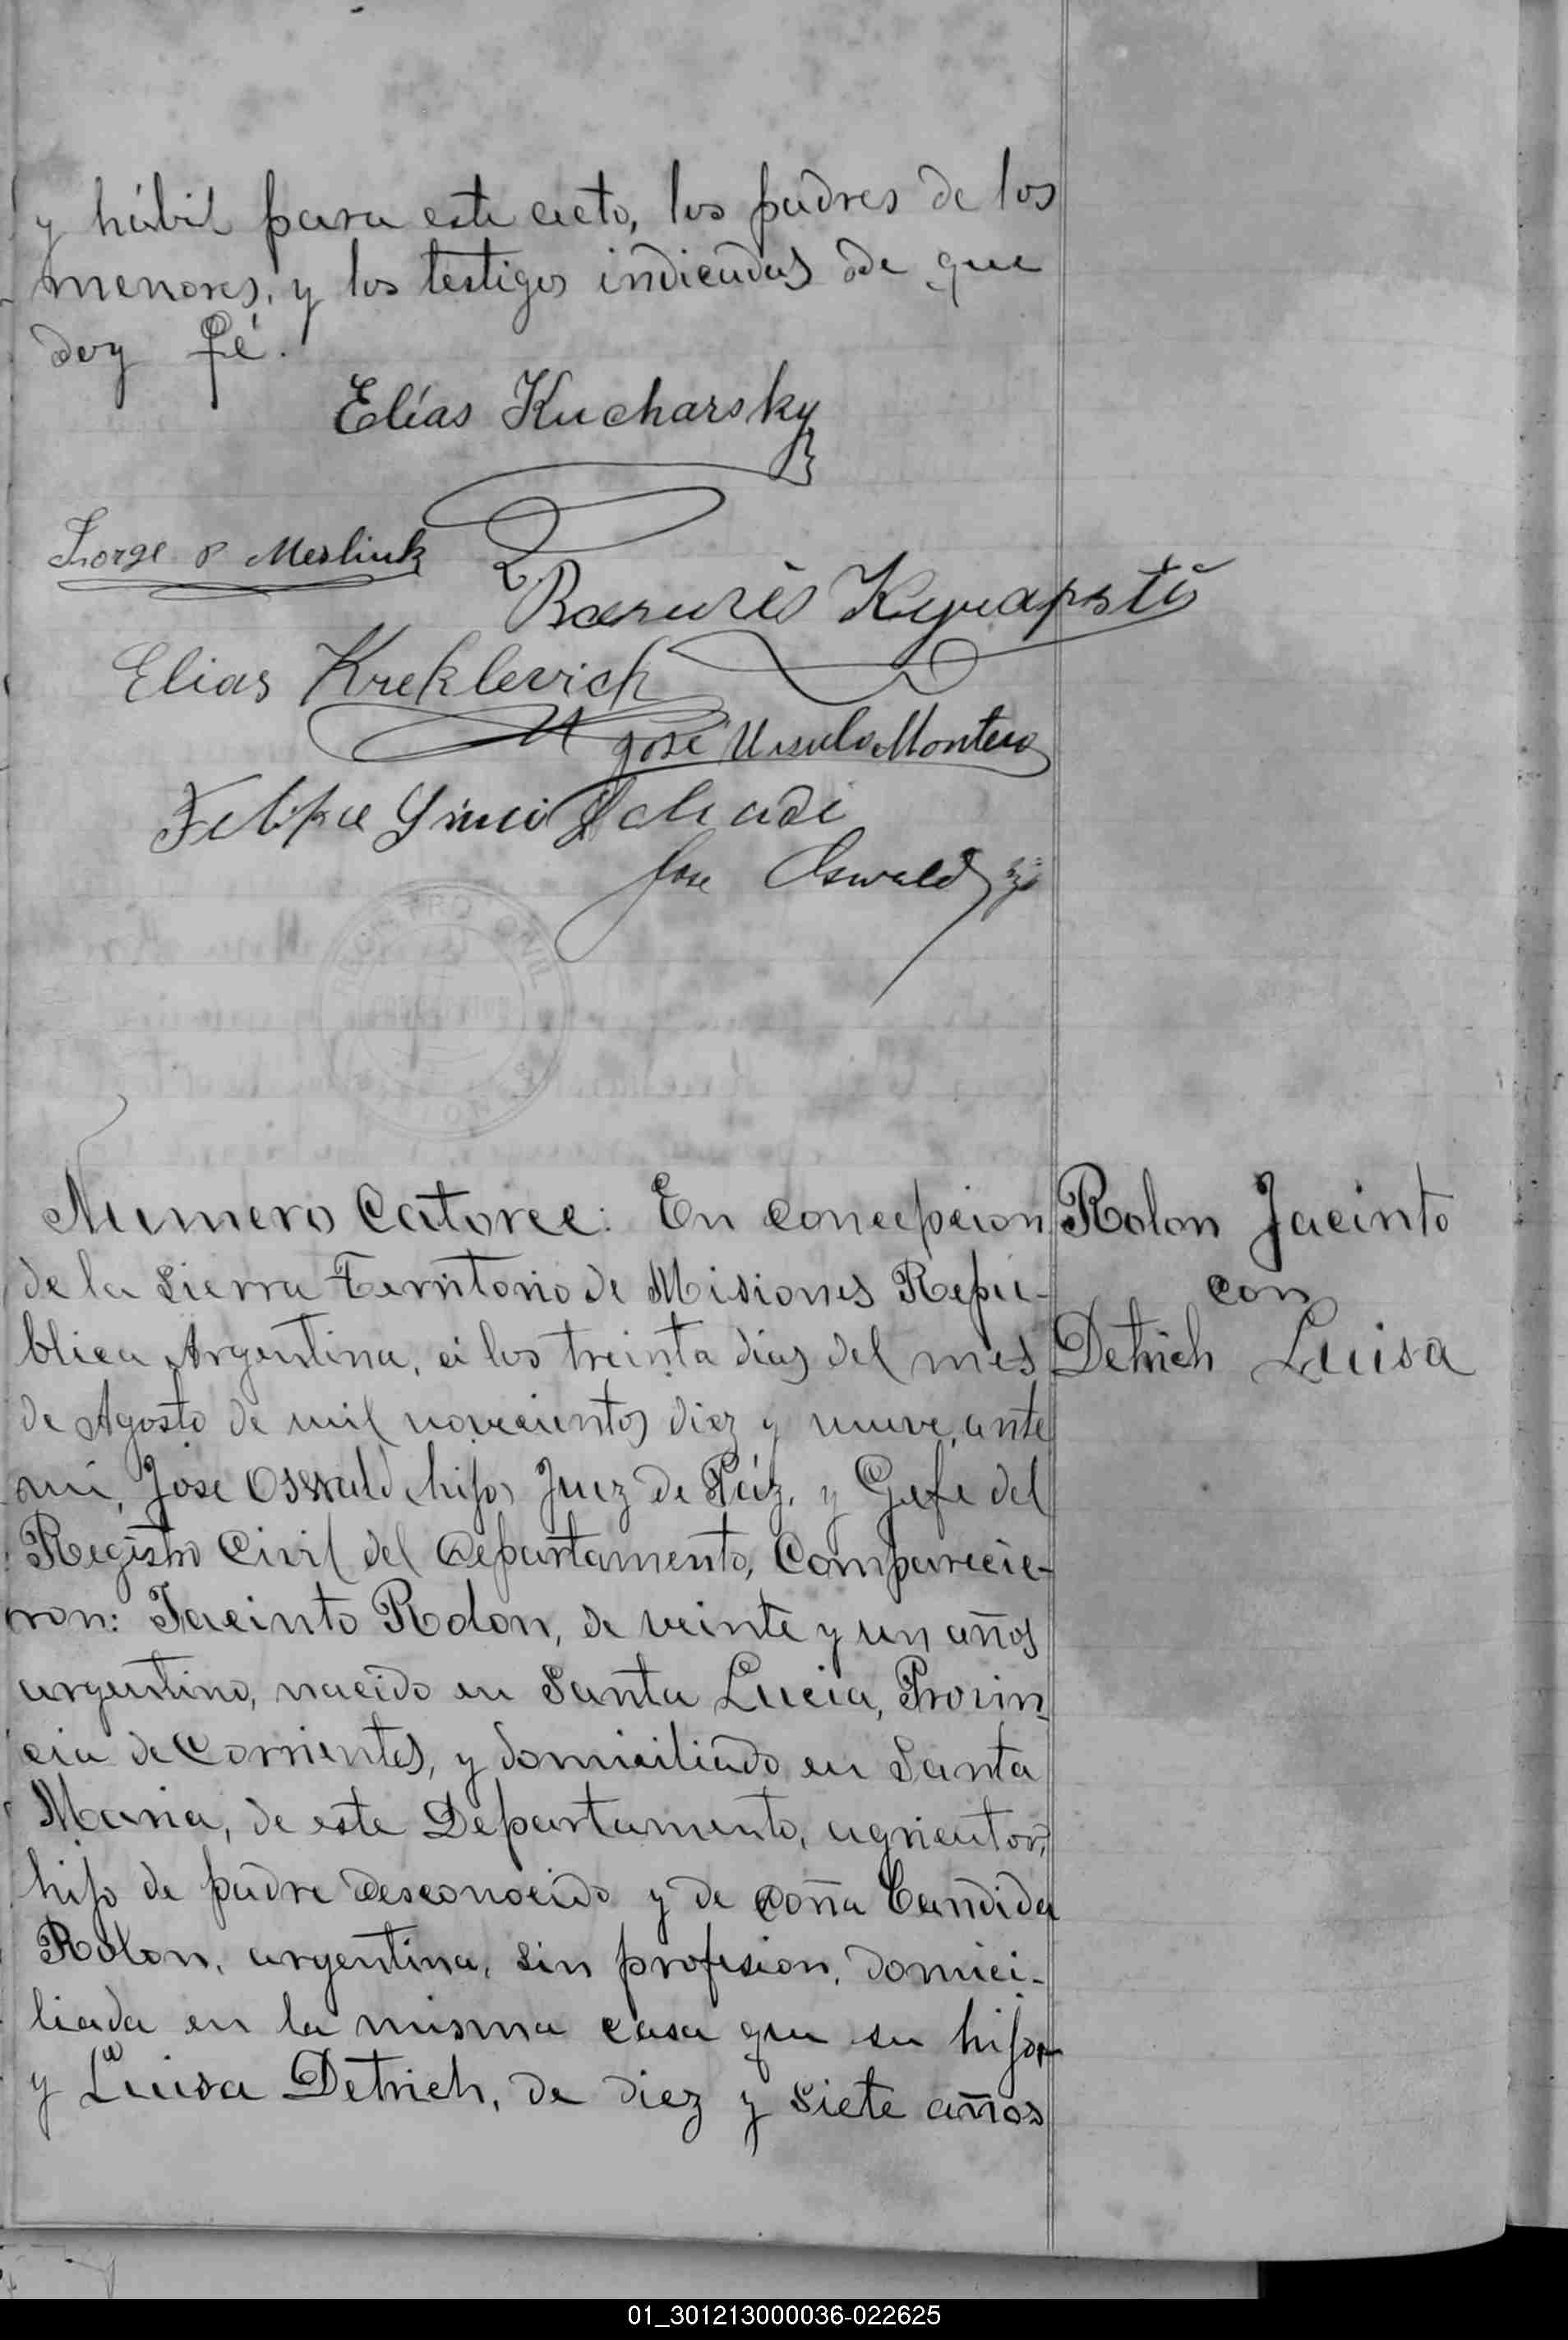 y hábil para este acto, los padres de los
menores, y los testigos indicados de que
doy fé.
Elías Kucharsky
Jorge Merlink
Elias Kreklevich
José Ursulo Montero
Felipe
Jose Oswald hijo
REGISTRO CIVIL
Numero Catorce: En Concepcion
de la Sierra Territorio de Misiones Repú-
blica Argentina, á los treinta dias del mes
de Agosto de mil novecientos diez y nueve, ante
mi, Jose Oswald hijo, Juez de Páz, y Gefe del
Registro Civil del Departamento, Comparecie-
ron: Jacinto Rolon, de veinte y un años
argentino, nacido en Santa Lucia, Provin
cia de Corrientes, y domiciliado en Santa
Maria, de este Departamento, agricultor,
hijo de padre desconocido y de doña Candida
Rolon, argentina, sin profesion, domici-
liada en la misma casa que su hijo
y Luisa Detrich, de diez y siete años
Rolon Jacinto
con
Detrich Luisa
01_301213000036-022625